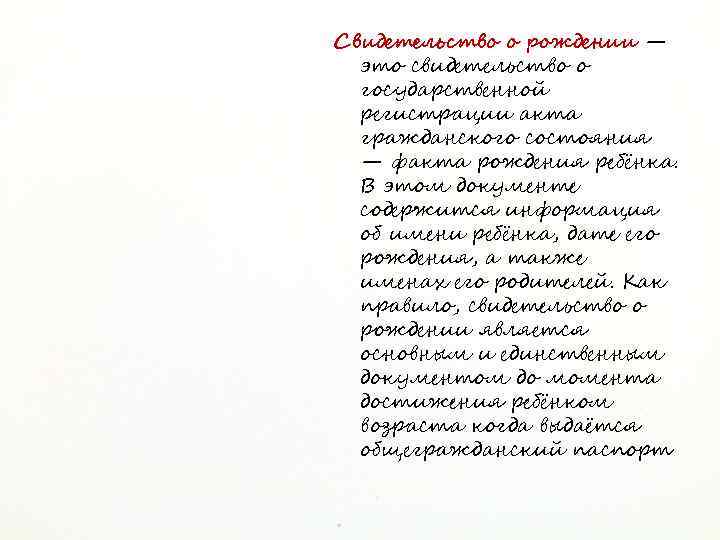 Свидетельство о рождении —
это свидетельство о
государственной
регистрации акта
гражданского состояния
— факта рождения ребёнка.
В этом документе
содержится информация
об имени ребёнка, дате его
рождения, а также
именах его родителей. Как
правило, свидетельство о
рождении является
основным и единственным
документом до момента
достижения ребёнком
возраста когда выдаётся
общегражданский паспорт